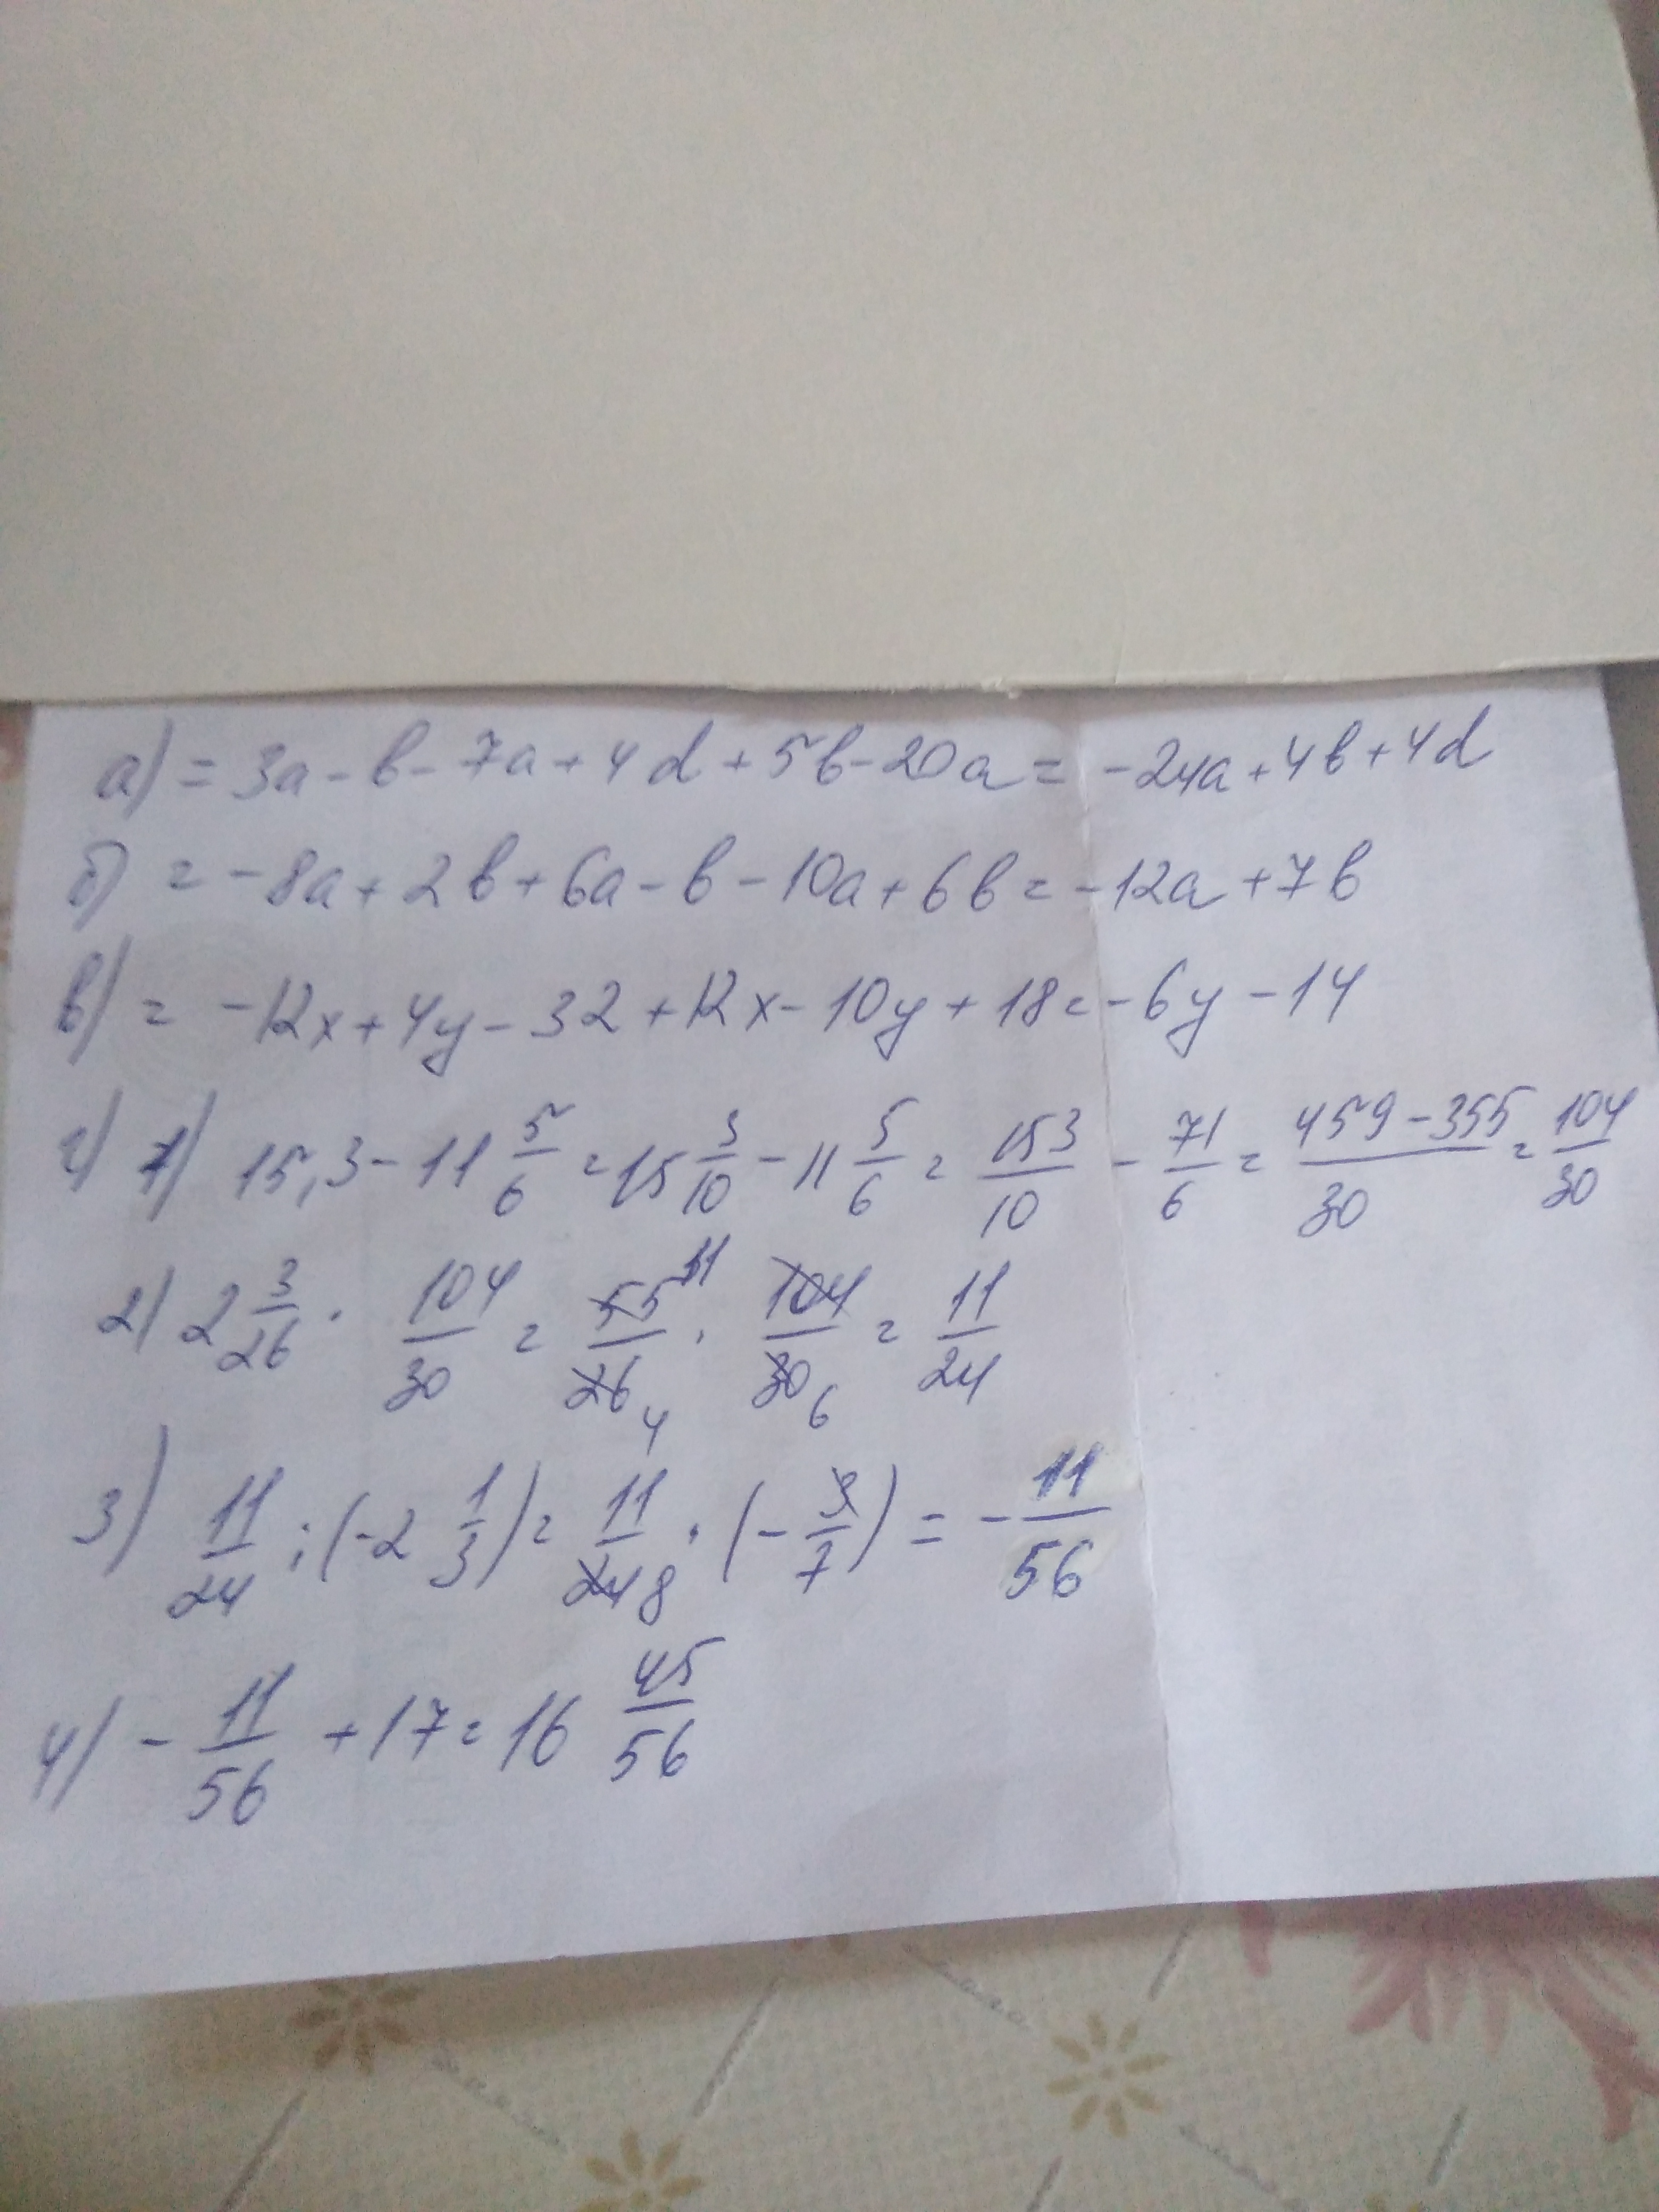 а) = 3a - b - 7a + 4d + 5b - 20a = -24a + 4b + 4d
б) = -8a + 2b + 6a - b - 10a + 6b = -12a + 7b
в) = -12x + 4y - 32 + 12x - 10y + 18 = -6y - 14
г) 1) 15,3 - 11 5/6 = 15 3/10 - 11 5/6 = 153/10 - 71/6 = 459-355/30 = 104/30
2) 2 3/26 · 104/30 = 55 11/26 4 · 104/30 6 = 11/24
3) 11/24 : (-2 1/3) = 11/24 8 · (-3/7) = -11/56
4) -11/56 + 17 = 16 45/56